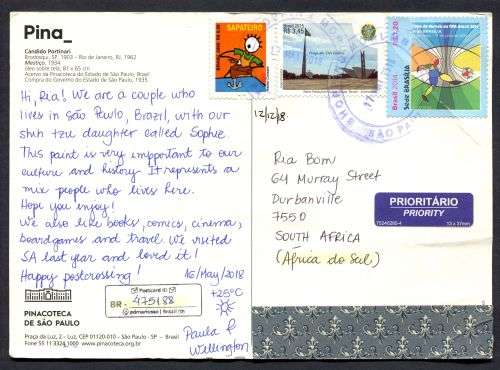 Pina_
Candido Portinari
Brodosqui, SP, 1903 - Rio de Janeiro, RJ, 1962
Mestiço, 1934
óleo sobre tela, 81 x 65 cm
Acervo da Pinacoteca do Estado de São Paulo, Brasil
Compra do Governo do Estado de São Paulo, 1935
Hi, Ria! We are a couple who
lives in São Paulo, Brazil, with our
shih tzu daughter called Sophie.
This paint is very important to our
culture and history. It represents a
mix people who lives here.
Hope you enjoy!
We also like books, comics, cinema,
boardgames and travel. We visited
SA last year and loved it!
Happy postcrossing!
16/May/2018
+25°C
Postcard ID
BR - 475188
Paula &
Wellington
PINACOTECA
DE SÃO PAULO
Praça da Luz, 2 - Luz, CEP 01120-010 - São Paulo - SP - Brasil
Fone 55 11 3324 1000 www.pinacoteca.org.br
SAPATEIRO
Brasil 2015
R$ 3,45
Brasil 2014
R$ 1,20
Sede BRASÍLIA
SÃO PA
12/12/18.
Ria Born
64 Murray Street
Durbanville
7550
SOUTH AFRICA
(África do Sul)
PRIORITÁRIO
PRIORITY
75240200-4
13 x 37mm